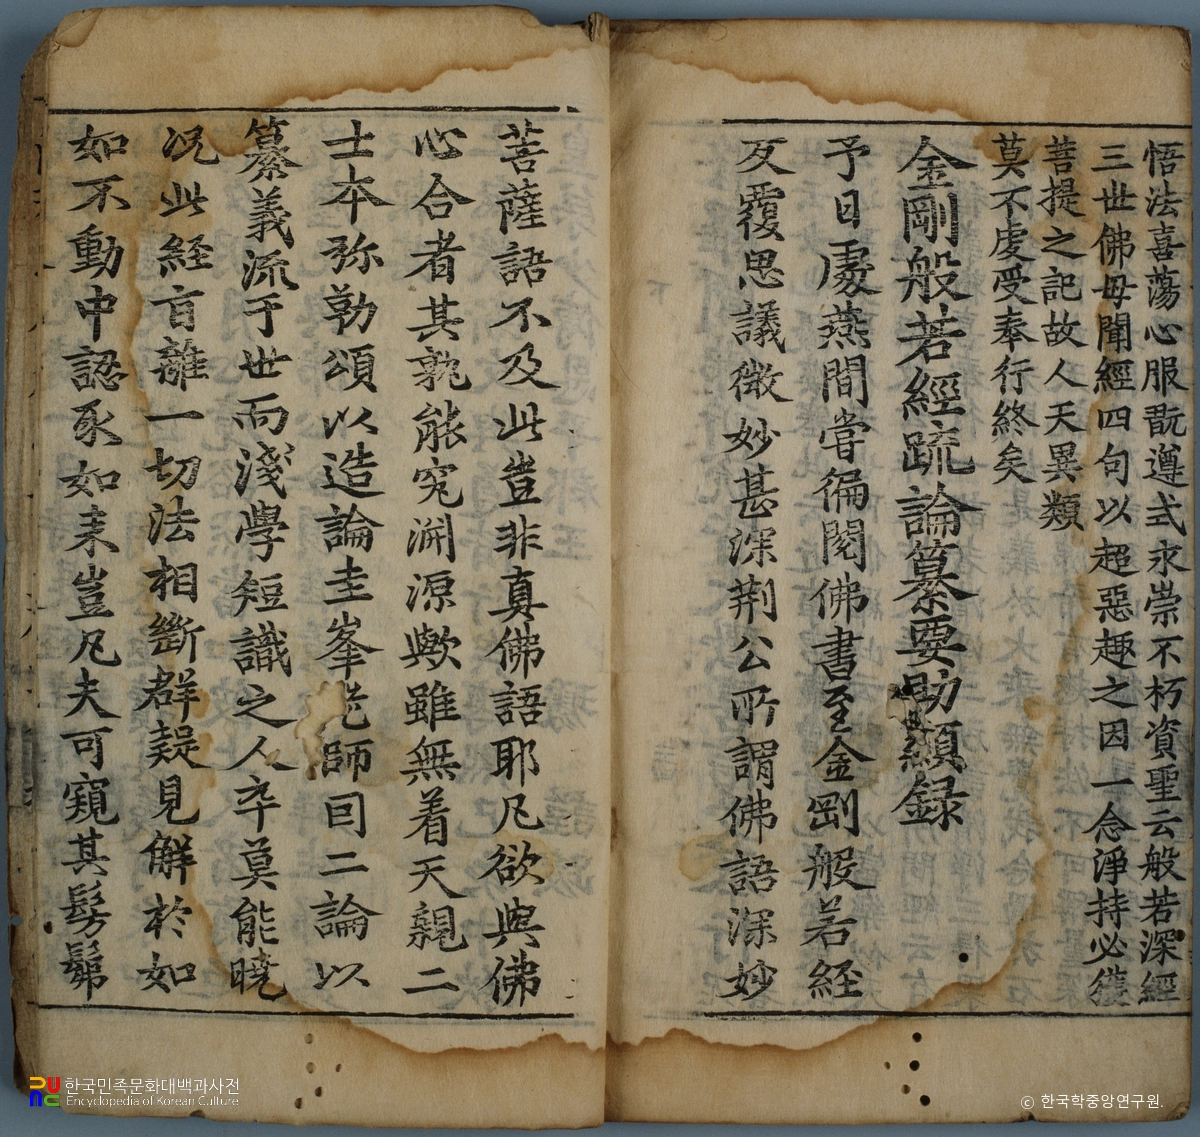 悟法喜蕩心服翫遵式永崇不朽資聖云般若深經
三世佛母聞經四句以超惡趣之因一念淨持必獲
菩提之記故人天異類
莫不虔受奉行終矣
金剛般若經疏論纂要助顯録
予日處燕閒嘗徧閱佛書至金剛般若経
反覆思議微妙甚深荆公所謂佛語深妙
菩薩語不及此豈非真佛語耶凡欲與佛
心合者其孰能究渊源歟雖無着天親二
士本弥勒頌以造論圭峯先師囘二論以
纂義流于世而淺學短識之人卒莫能曉
况此経盲離一切法相斷群疑見解於如
如不動中認取如来豈凡夫可窺其髣髴
한국민족문화대백과사전
Encyclopedia of Korean Culture
ⓒ 한국학중앙연구원.